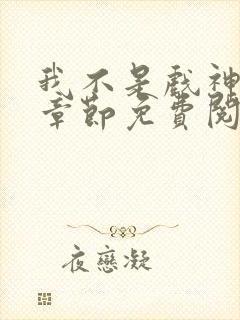 我不是戲神
章節免費閱
夜戀凝